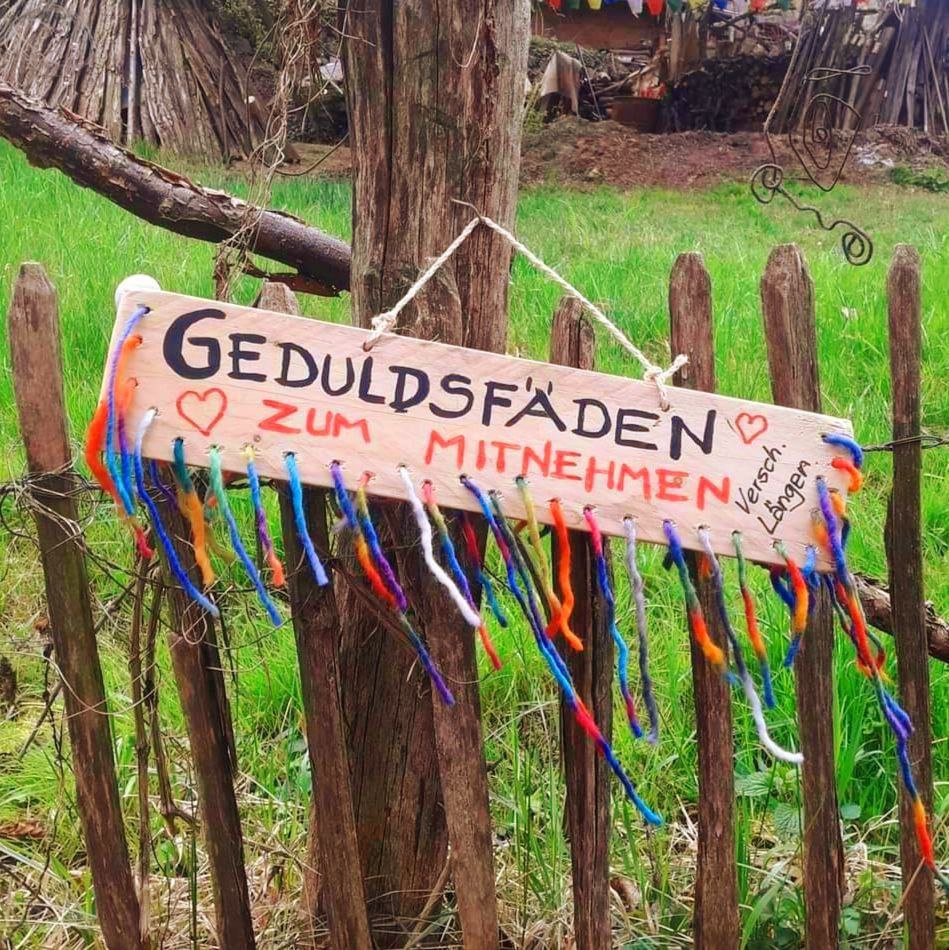 GEDULDSFÄDEN
ZUM MITNEHMEN
Versch.
Längen